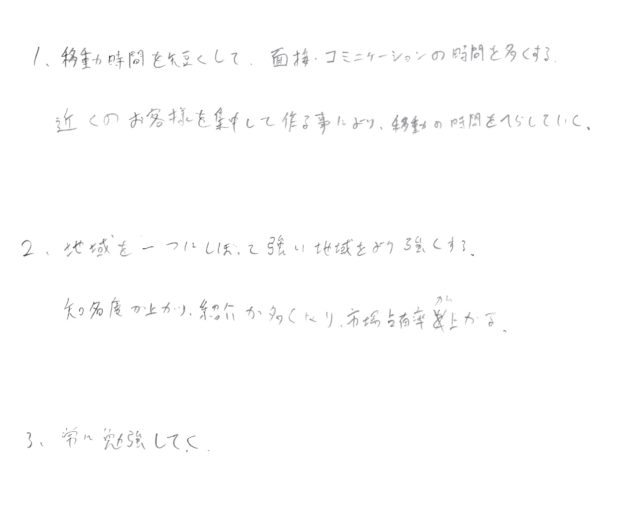 1、移動時間を短くして、面接・コミニケーションの時間を多くする.
近くのお客様を集中して作る事により、移動の時間をへらしていく。
2、地域を一つにしぼって強い地域をより強くする。
知名度が上がり、紹介が多くなり、市場占有率が上がる。
3、常に勉強してく.